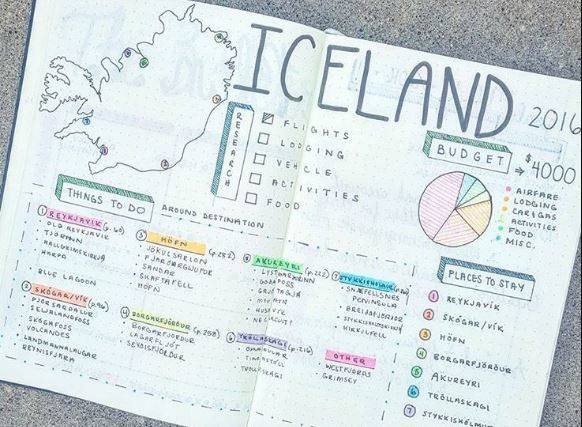 ICELAND
2016
RESEARCH
FLIGHTS
LODGING
VEHICLE
ACTIVITIES
FOOD
BUDGET → $4000
AIRFARE
LODGING
CAR/GAS
ACTIVITIES
FOOD
MISC.
THINGS TO DO AROUND DESTINATION
1 REYKJAVÍK
OLD REYKJAVIK
TJÖRNIN
HALLGRIMSKIRKJA
HARPA
BLUE LAGOON
2 SKÓGAR/VÍK
ÞJORSARDALUR
SELJALANDFOSS
SKOGAFOSS
VOLCANOES
LANDMANNALAUGAR
REYNISFJARA
3 HÖFN
JÖKULSARLON
SANDAR
SKAFTAFELL
HÖFN
4 BORGARFJÖRÐUR
BORGARFJORDUR
LAGARFLJOT
SEYDISFJORDUR
5 AKUREYRI
GODAFOSS
MYVATN
HUSAVIK
6 TRÖLLASKAGI
TROLLASKAGI
7 STYKKISHÓLMUR
SNÆFELLSNES
PENINSULA
KIRKJUFELL
OTHER
WESTFJORDS
GRIMSEY
PLACES TO STAY
1 REYKJAVÍK
2 SKÓGAR/VÍK
3 HÖFN
4 BORGARFJÖRÐUR
5 AKUREYRI
6 TRÖLLASKAGI
7 STYKKISHÓLMUR